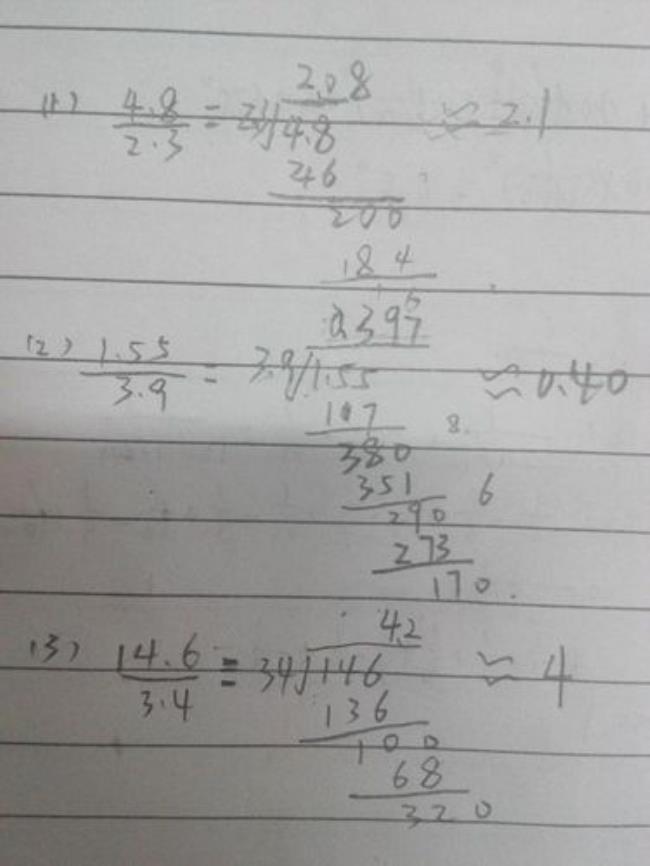 2.08
(1) 4.8/2.3 = 23√4.8 ≈ 2.1
46
200
184
0.397
(2) 1.55/3.9 = 3.9√1.55 ≈ 0.40
107 8.
380
351 6
290
273
170.
4.2
(3) 14.6/3.4 = 34√146 ≈ 4
136
100
68
320